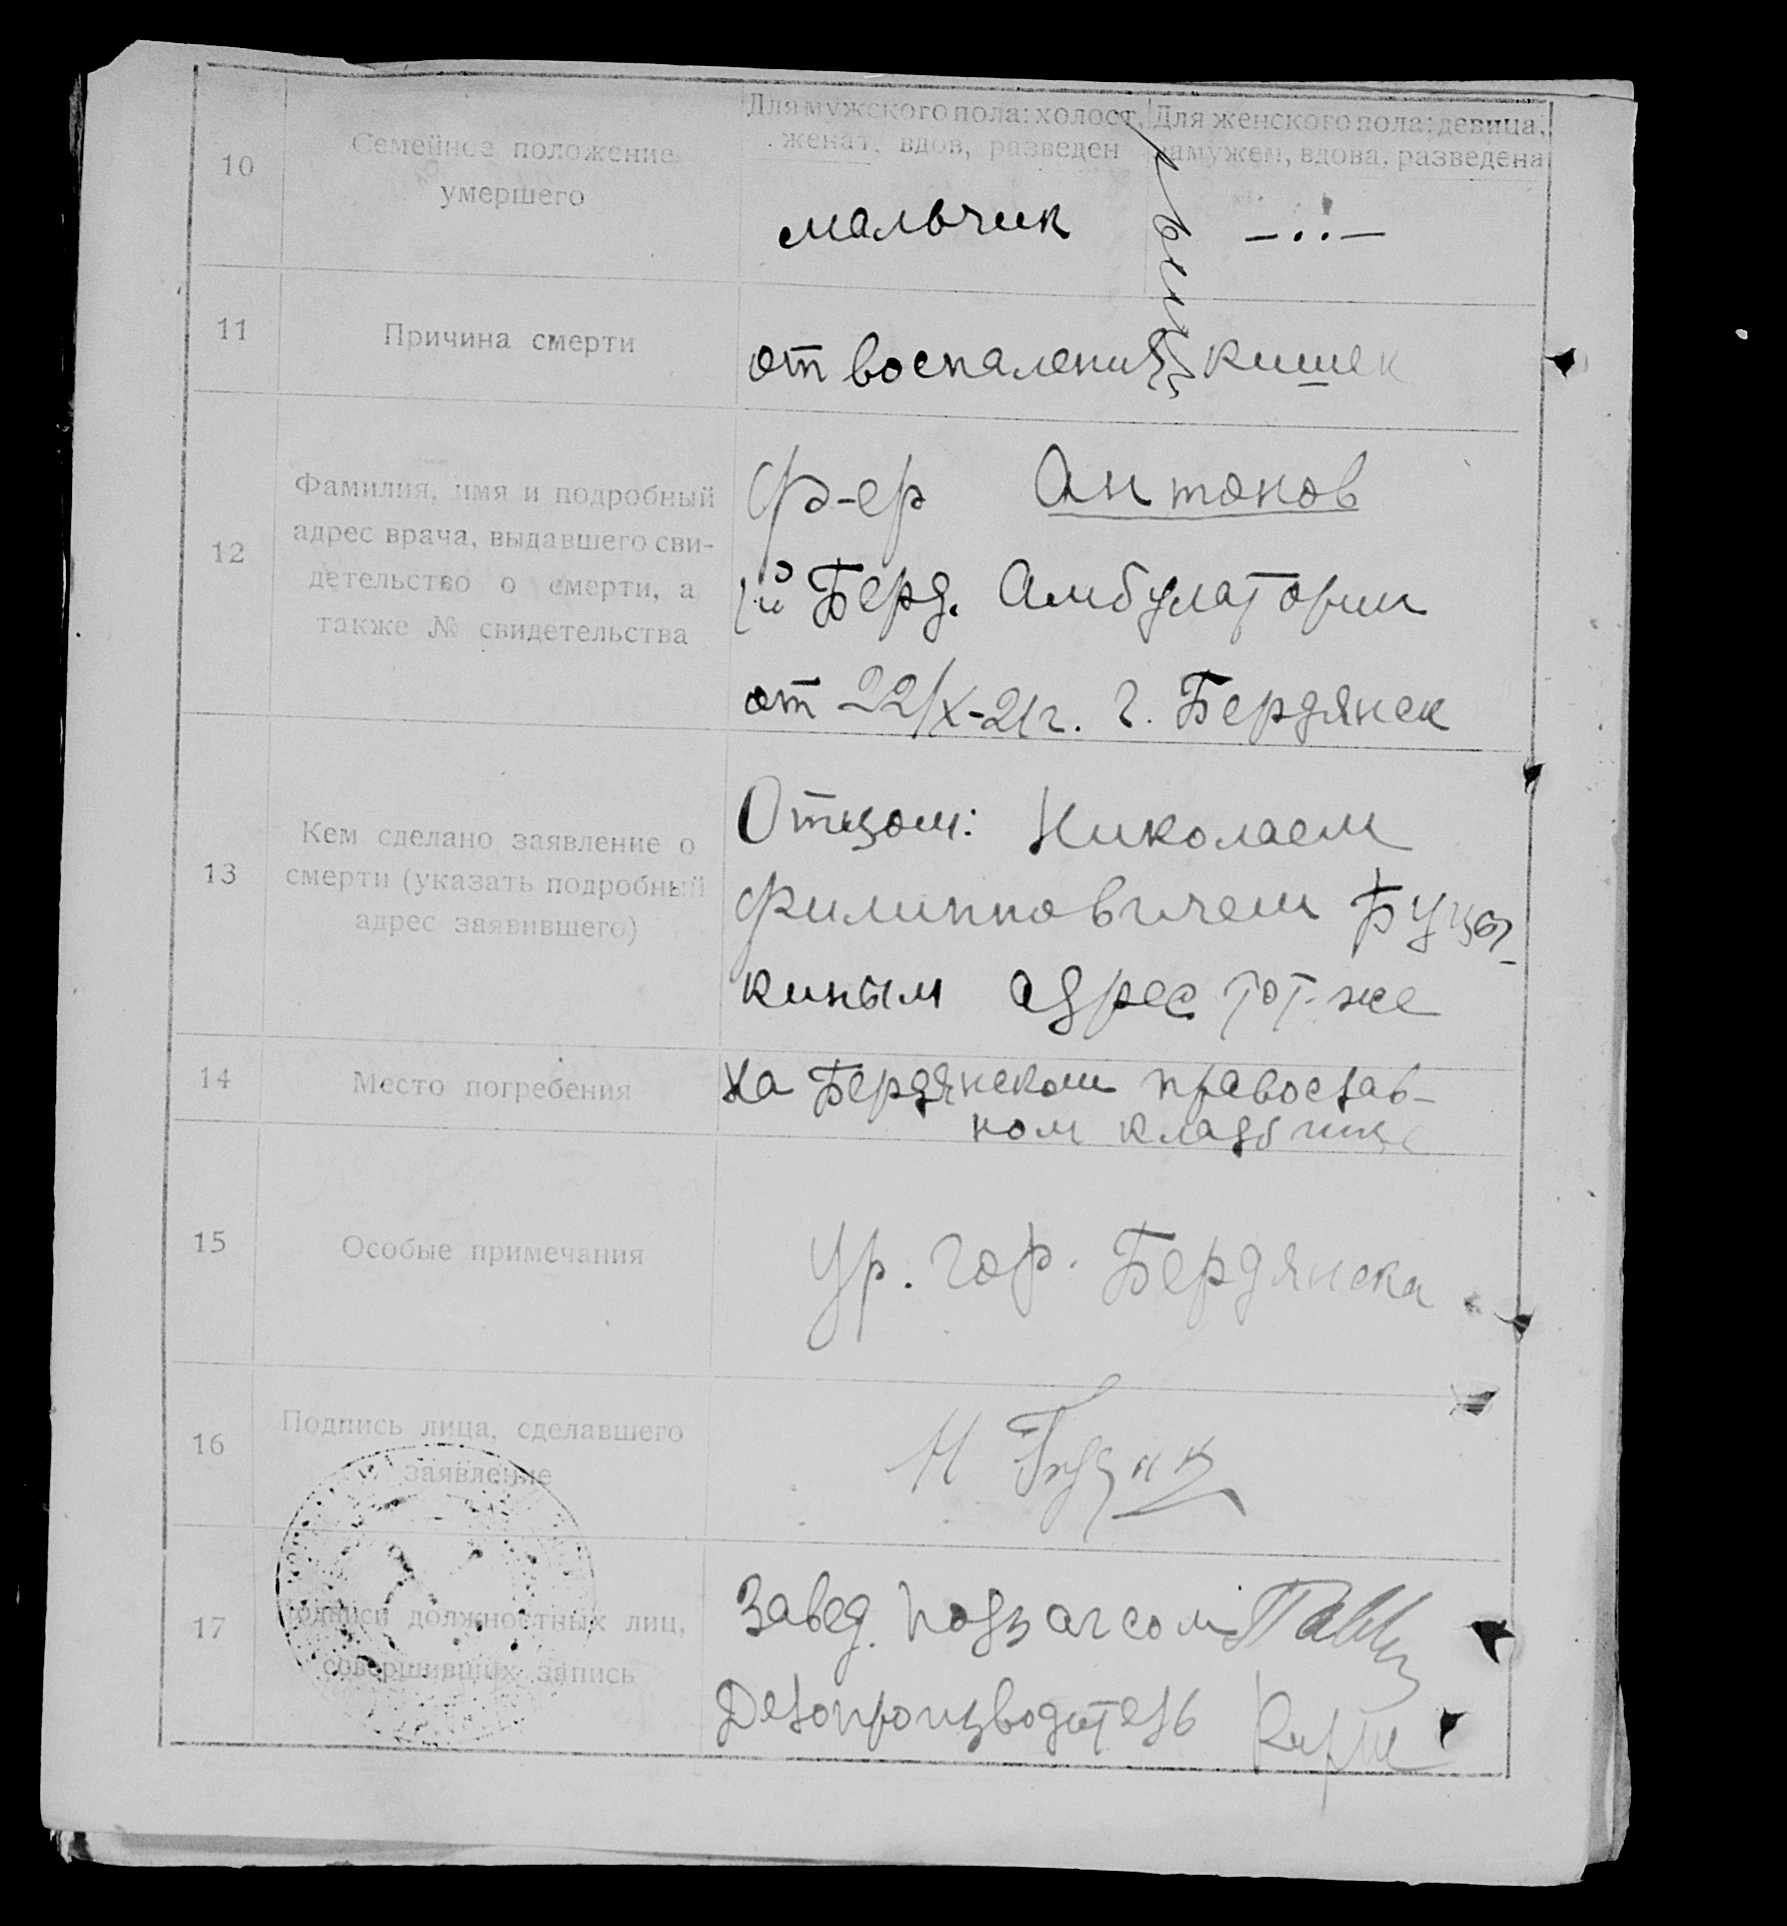 10
Семейное положение
умершего
Для мужского пола: холост,
женат, вдов, разведен
Для женского пола: девица,
замужем, вдова, разведена
мальчик
— . . —
11
Причина смерти
от воспаления кишек
12
Фамилия, имя и подробный
адрес врача, выдавшего сви-
детельство о смерти, а
также № свидетельства
ф-ер Антонов
Берд. Амбулатории
от 22/X-21г. г. Бердянск
13
Кем сделано заявление о
смерти (указать подробный
адрес заявившего)
Отцом: Николаем
Филипповичем
киным адрес тот-же
14
Место погребения
На Бердянском православ-
ном кладбище
15
Особые примечания
Ур. гор. Бердянска
16
Подпись лица, сделавшего
заявление
Н
17
Подписи должностных лиц,
совершивших запись
Завед. подзагсом
Делопроизводитель